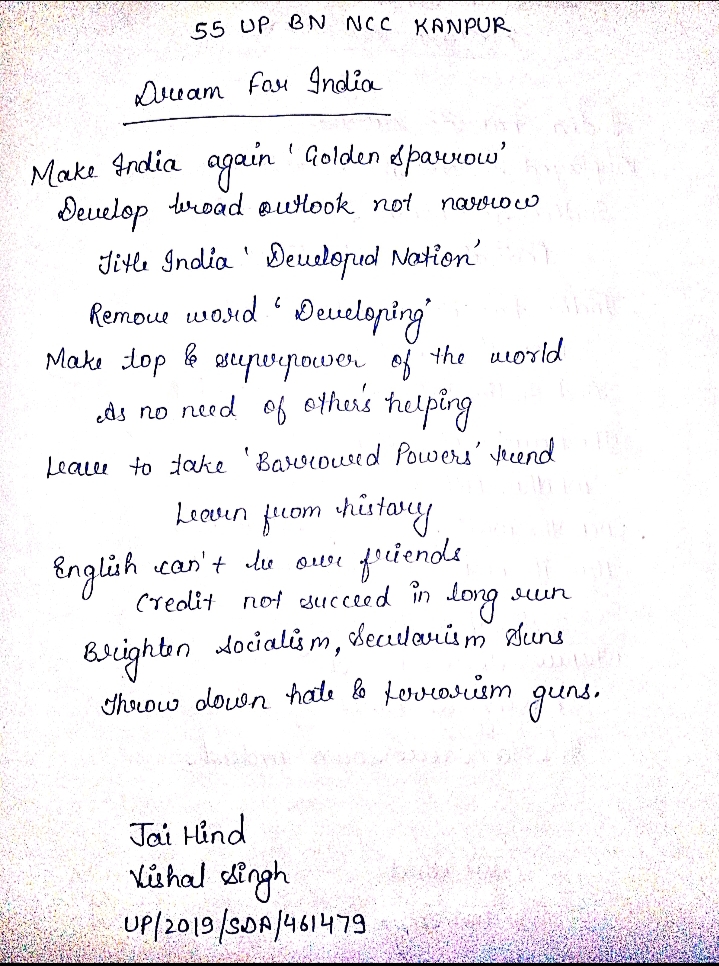 55 UP BN NCC KANPUR
Dream For India
Make India again 'Golden Sparrow'
Develop broad outlook not narrow
Title India 'Developed Nation'
Remove word 'Developing'
Make top & superpower of the world
As no need of other's helping
Leave to take 'Barrowed Powers' trend
Learn from history
English can't be our friends
Credit not succeed in long run
Brighten Socialism, Secularism Suns
Throw down hate & terrorism guns.
Jai Hind
Vishal Singh
UP/2019/SDA/461479